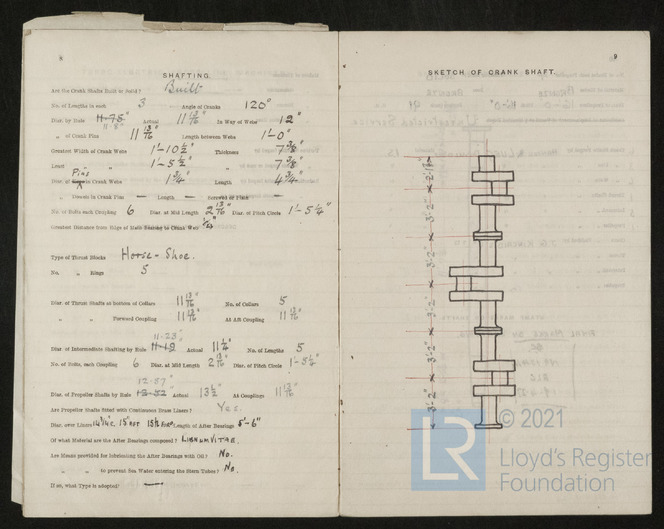 8
SHAFTING.
Are the Crank Shafts Built or Solid? Built
No. of Lengths in each 3 Angle of Cranks 120°
Diar. by Rule 11.75" Actual 11 13/16" In Way of Webs 12"
11.8"
„ of Crank Pins 11 13/16" Length between Webs 1'-0"
Greatest Width of Crank Webs 1'-10 1/2" Thickness 7 3/8"
Least „ „ 1'-5 1/2" „ 7 3/8"
Pins
Diar. of in Crank Webs 1 3/4" Length 4 3/4"
„ Dowels in Crank Pins — Length — Screwed or Plain —
No. of Bolts each Coupling 6 Diar. at Mid Length 2 13/16" Diar. of Pitch Circle 1'-5 1/4"
Greatest Distance from Edge of Main Bearing to Crank Web
Type of Thrust Blocks Horse-Shoe.
No. „ Rings 5
Diar. of Thrust Shafts at bottom of Collars 11 13/16" No. of Collars 5
„ „ Forward Coupling 11 13/16" At Aft Coupling 11 13/16"
11.23"
Diar. of Intermediate Shafting by Rule 11.19 Actual 11 1/4" No. of Lengths 5
No. of Bolts, each Coupling 6 Diar. at Mid Length 2 13/16" Diar. of Pitch Circle 1'-5 1/4"
12.57"
Diar. of Propeller Shafts by Rule Actual 13 1/2" At Couplings 11 13/16"
Are Propeller Shafts fitted with Continuous Brass Liners? Yes.
Diar. over Liners Length of After Bearings 5'-6"
Of what Material are the After Bearings composed? LIGNUM VITAE.
Are Means provided for lubricating the After Bearings with Oil? No.
„ „ to prevent Sea Water entering the Stern Tubes? No.
If so, what Type is adopted? —
9
SKETCH OF CRANK SHAFT.
3'-2"
3'-2"
3'-2"
3'-2"
3'-2"
© 2021
LR
Lloyd's Register
Foundation